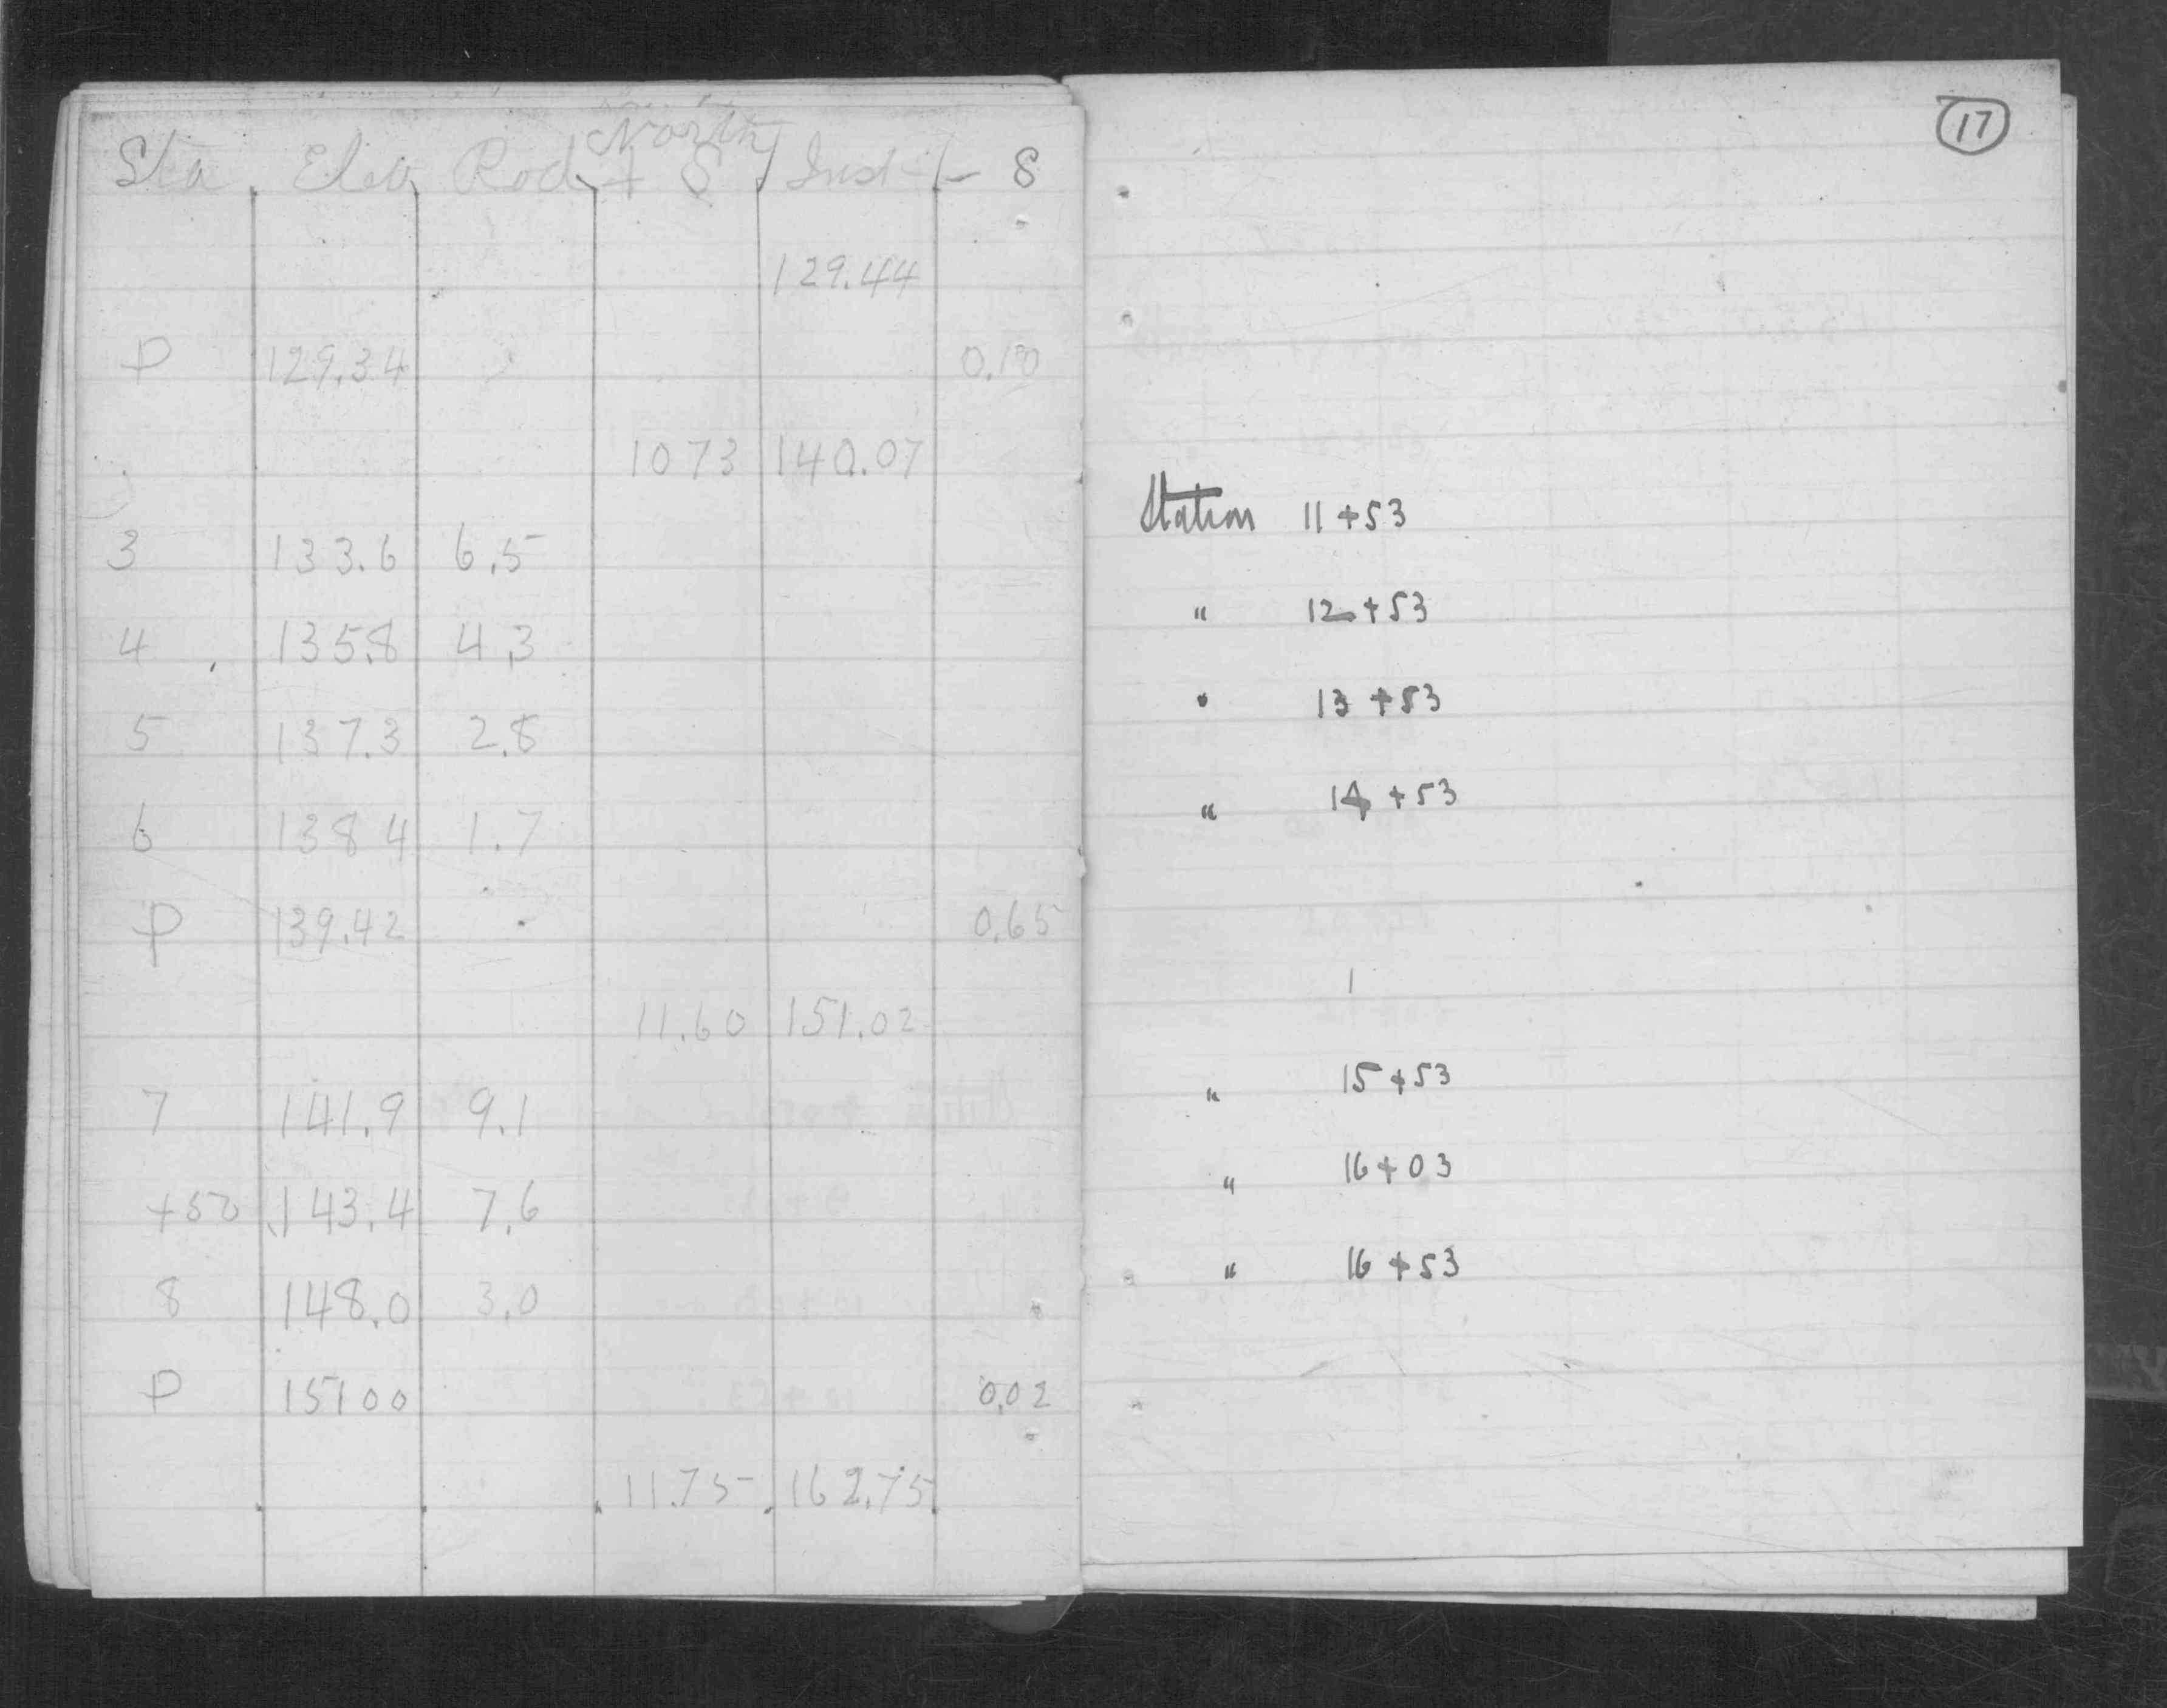 North
Sta. Elev Rod + S Inst - S
129.44
P 129.34 0.10
10 73 140.07
3 133.6 6.5
4 135.8 4.3
5 137.3 2.8
6 138 4 1.7
P 139.42 0.65
11.60 151.02
7 141.9 9.1
+50 143.4 7.6
8 148.0 3.0
P 151 00 0.02
11.75 162.75
17
Station 11+53
" 12+53
" 13+53
" 14+53
" 15+53
" 16+03
" 16+53